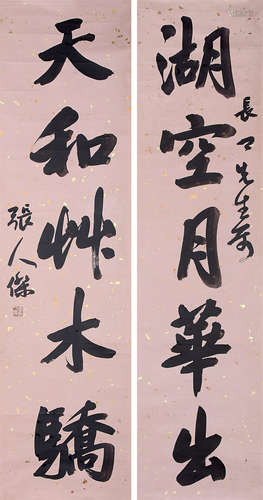 湖空月華出
長
先生
天和艸木驕
張人傑